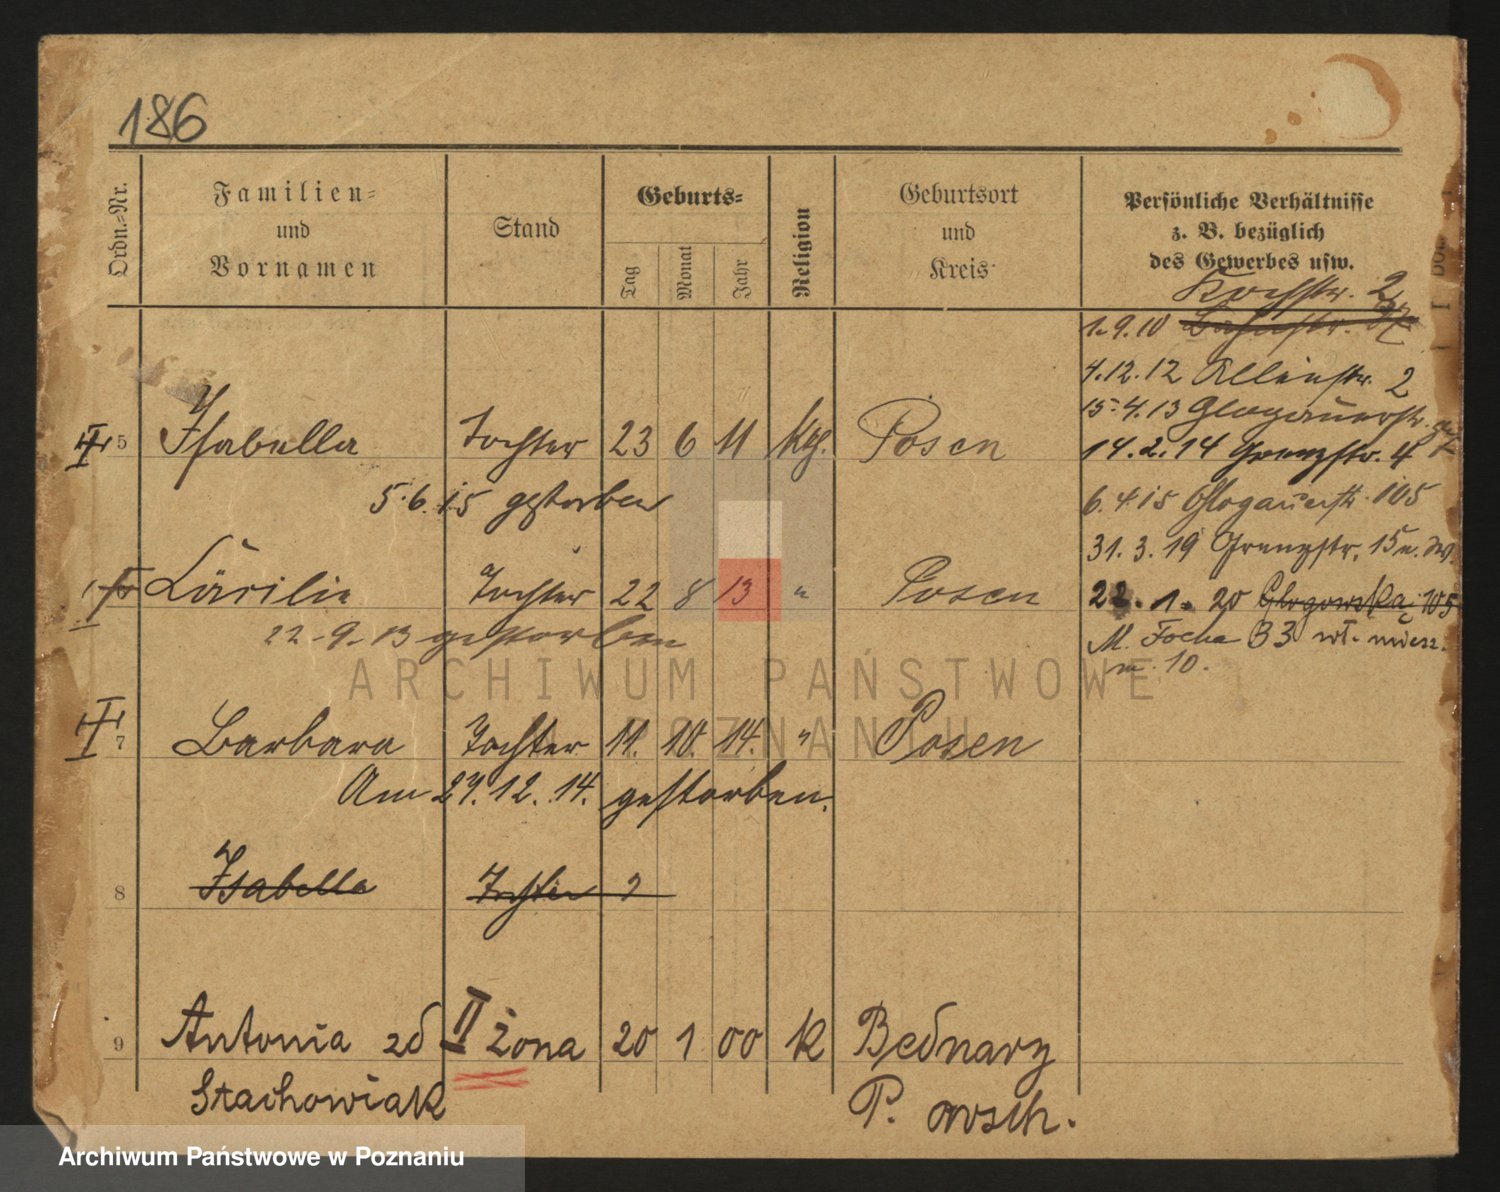 186
Ordn.-Nr.
Familien-
und
Vornamen
Stand
Geburts-
Tag
Monat
Jahr
Religion
Geburtsort
und
Kreis
Persönliche Verhältnisse
z. B. bezüglich
des Gewerbes usw.
Kochstr. 2
1.9.10
4.12.12 2
15.4.13 Glogauerstr.
5 Isabella Tochter 23 6 11 kth. Posen
14.2.14 Grenzstr. 4
5.6.15 gestorben
6.4.15 Glogauerstr. 105
31.3.19 Grenzstr. 15
Cäcilie Tochter 22 8 13 " Posen
22.1.20 Glogowska 105
22.9.13 gestorben
M. Focha 33 wł. miesz.
m. 10.
7 Barbara Tochter 11. 10. 14. " Posen
Am 27.12.14. gestorben.
8 Isabella Tochter 2
9 Antonia zd II żona 20 1 00 k Bednary
Stachowiak P. wsch.
ARCHIWUM PAŃSTWOWE
W POZNANIU
Archiwum Państwowe w Poznaniu